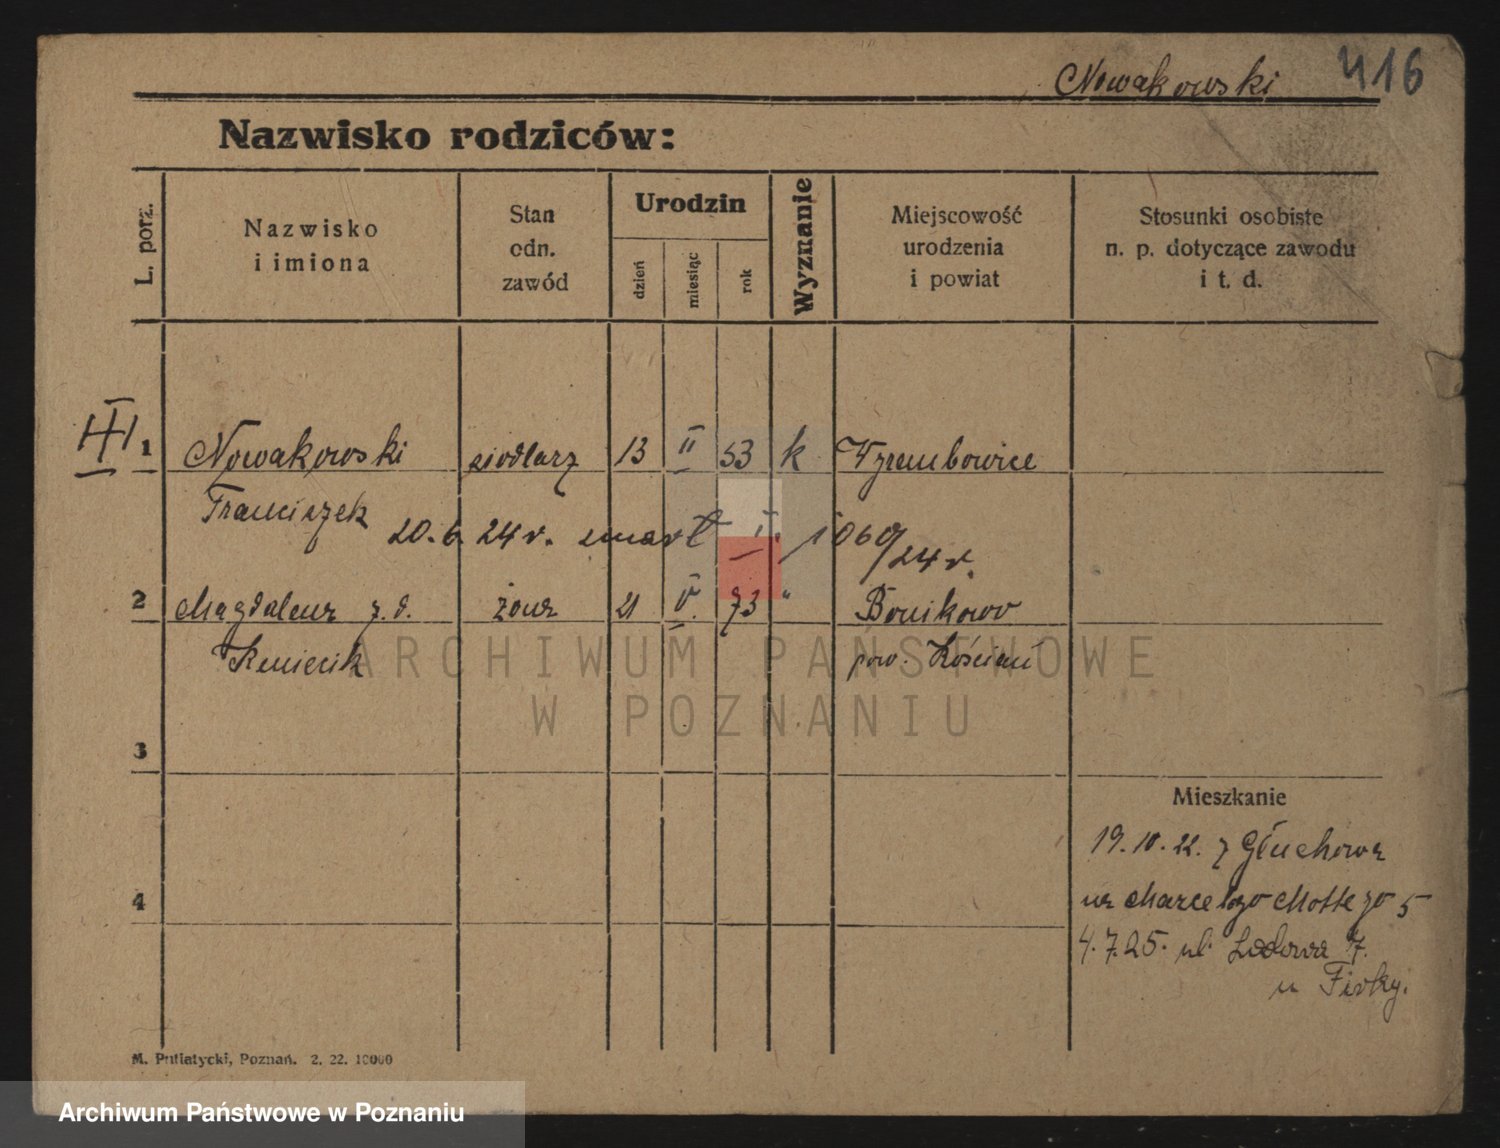 Nowakowski 416
Nazwisko rodziców:
L. porz.
Nazwisko
i imiona
Stan
odn.
zawód
Urodzin
dzień
miesiąc
rok
Wyznanie
Miejscowość
urodzenia
i powiat
Stosunki osobiste
n. p. dotyczące zawodu
i t. d.
III
1 Nowakowski siodlarz 13 II 53 k Wyrembowice
Franciszek
20.6.24 r. zmarł I. 1060/24 r.
2 Magdalena z.d. żona 21 V. 73 " Bonikowo
pow. Kościan
3
4
Mieszkanie
19.10.22. z Głuchowa
na Marcelego Mottego 5
4.7.25. ul.
M. Putiatycki, Poznań. 2. 22. 10000
ARCHIWUM PAŃSTWOWE
W POZNANIU
Archiwum Państwowe w Poznaniu